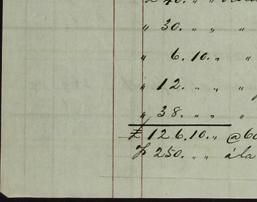 " 240. " "
" 30. " " "
" 6.10. " "
" 12. " " "
" 38. " " "
£ 126.10. " @ 60
$ 250. " " á la